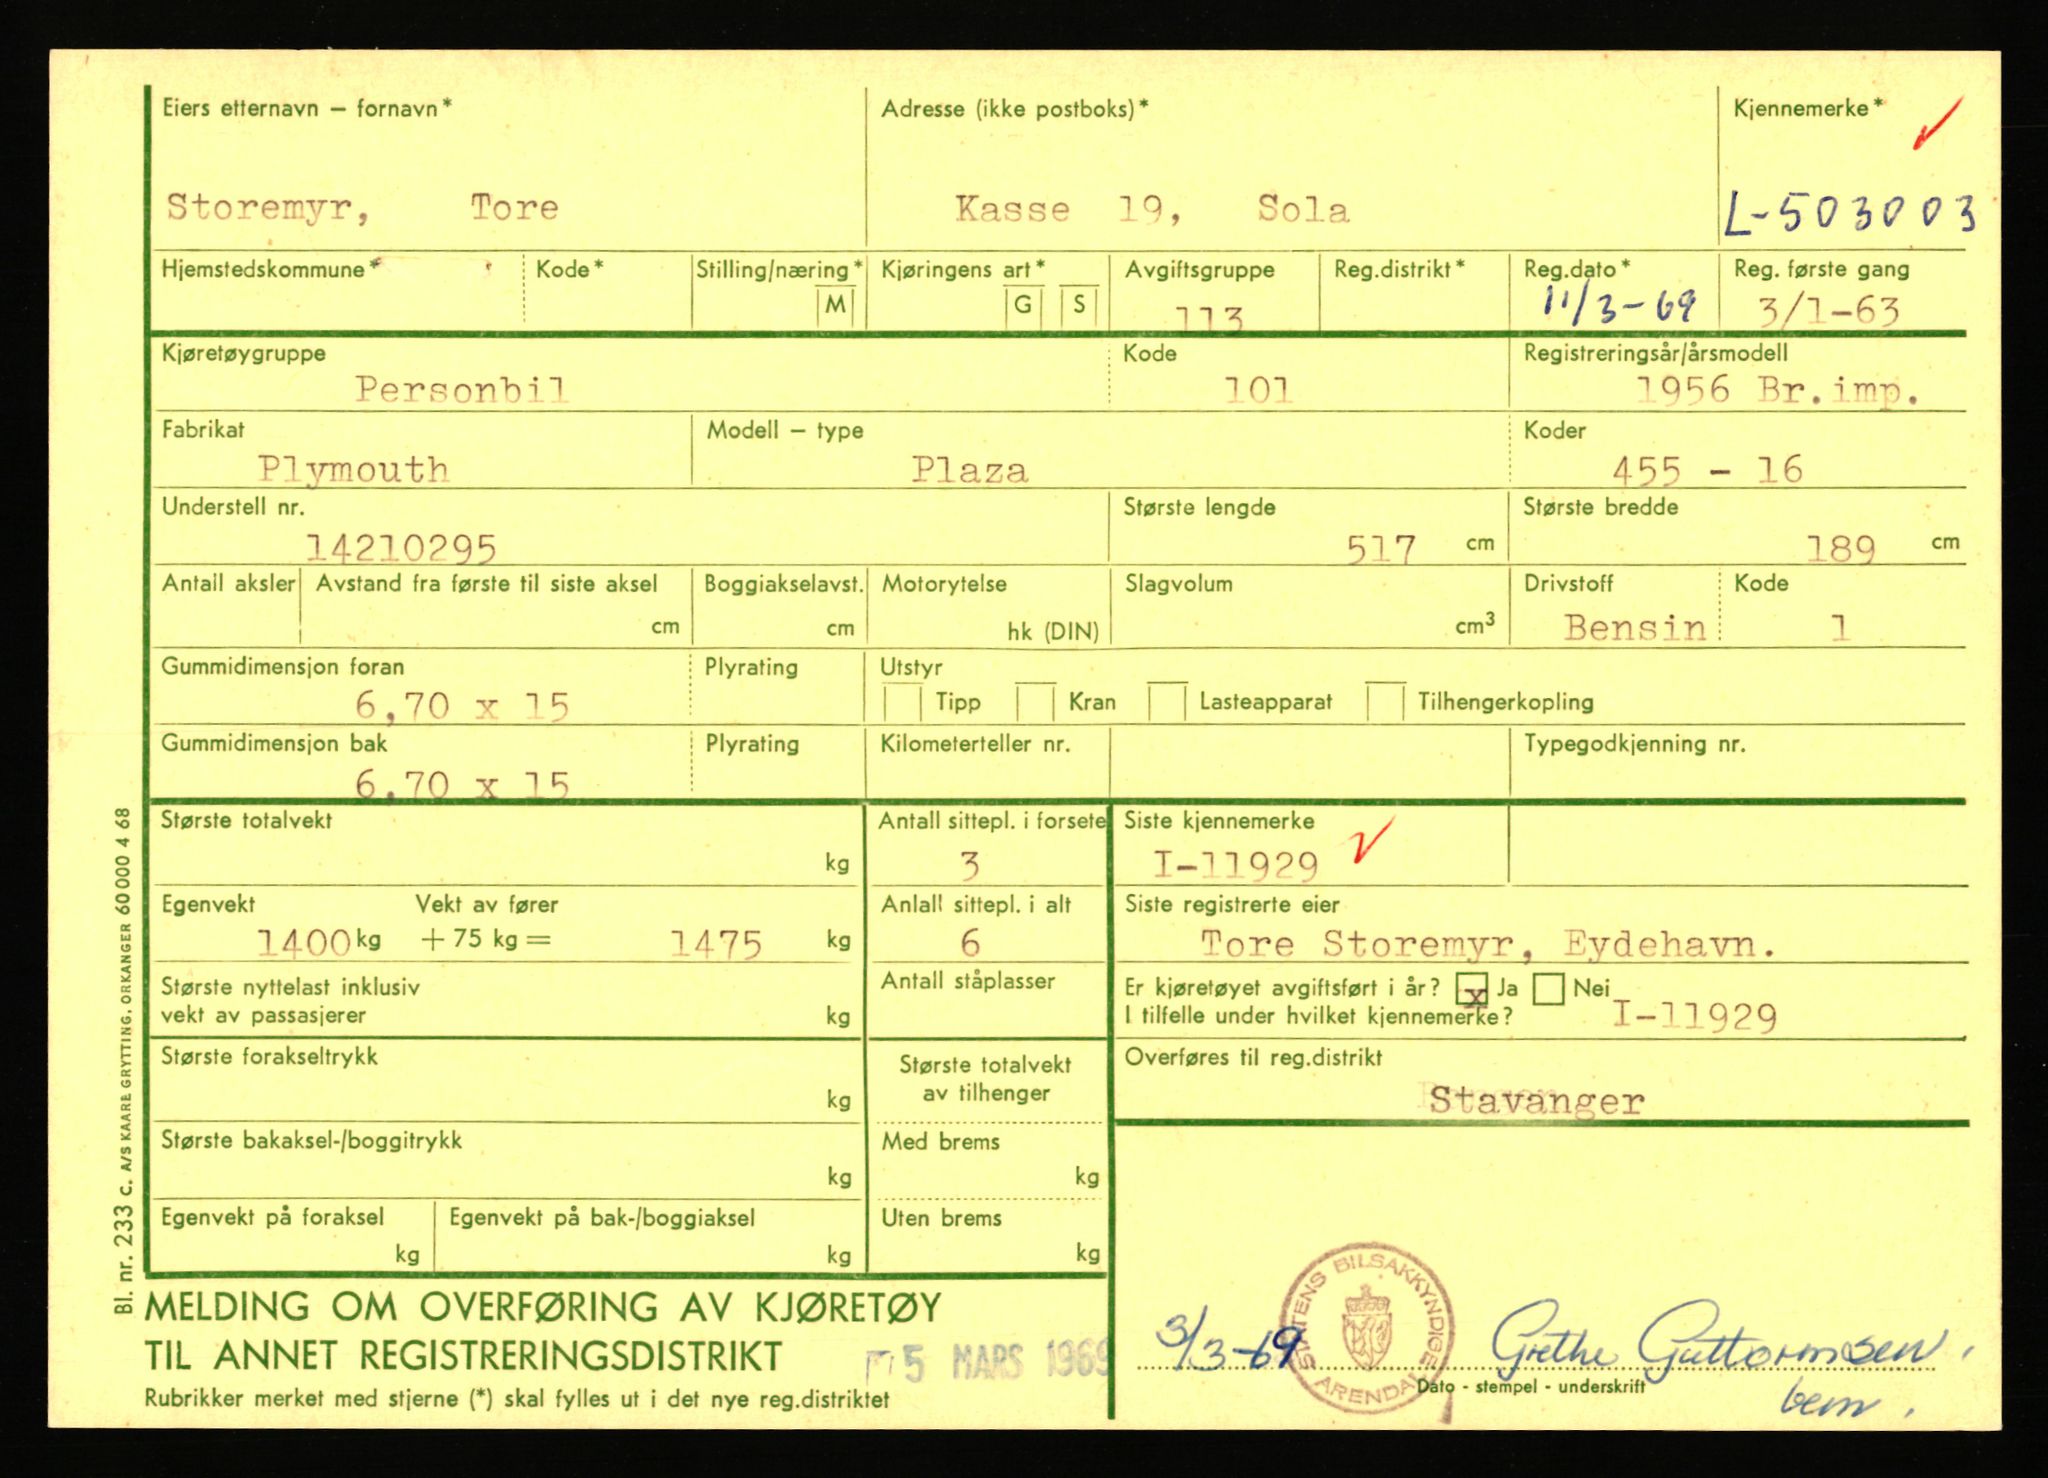 Eiers etternavn – fornavn* Adresse (ikke postboks)* Kjennemerke*
Storemyr, Tore Kasse 19, Sola L-503003
Hjemstedskommune* Kode* Stilling/næring* Kjøringens art* Avgiftsgruppe Reg.distrikt* Reg.dato* Reg. første gang
M G S 113 11/3-69 3/1-63
Kjøretøygruppe Kode Registreringsår/årsmodell
Personbil 101 1956 Br.imp.
Fabrikat Modell – type Koder
Plymouth Plaza 455 - 16
Understell nr. Største lengde Største bredde
14210295 517 cm 189 cm
Antall aksler Avstand fra første til siste aksel Boggiakselavst. Motorytelse Slagvolum Drivstoff Kode
cm cm hk (DIN) cm3 Bensin 1
Gummidimensjon foran Plyrating Utstyr
6,70 x 15 Tipp Kran Lasteapparat Tilhengerkopling
Gummidimensjon bak Plyrating Kilometerteller nr. Typegodkjenning nr.
6,70 x 15
Største totalvekt Antall sittepl. i forsete Siste kjennemerke
kg 3 I-11929
Egenvekt Vekt av fører Anlall sittepl. i alt Siste registrerte eier
1400 kg + 75 kg = 1475 kg 6 Tore Storemyr, Eydehavn.
Største nyttelast inklusiv Antall ståplasser Er kjøretøyet avgiftsført i år? x Ja Nei
vekt av passasjerer kg I tilfelle under hvilket kjennemerke? I-11929
Største forakseltrykk Største totalvekt Overføres til reg.distrikt
kg av tilhenger Stavanger
Største bakaksel-/boggitrykk Med brems
kg kg
Egenvekt på foraksel Egenvekt på bak-/boggiaksel Uten brems
kg kg kg
MELDING OM OVERFØRING AV KJØRETØY
TIL ANNET REGISTRERINGSDISTRIKT 5 MARS 1969
Rubrikker merket med stjerne (*) skal fylles ut i det nye reg.distriktet
STATENS BILSAKKYNDIGE ARENDAL
3/3-69 Grethe Guttormsen
Dato - stempel - underskrift
bem.
Bl. nr. 233 c. A/S KAARE GRYTTING, ORKANGER 60 000 4 68